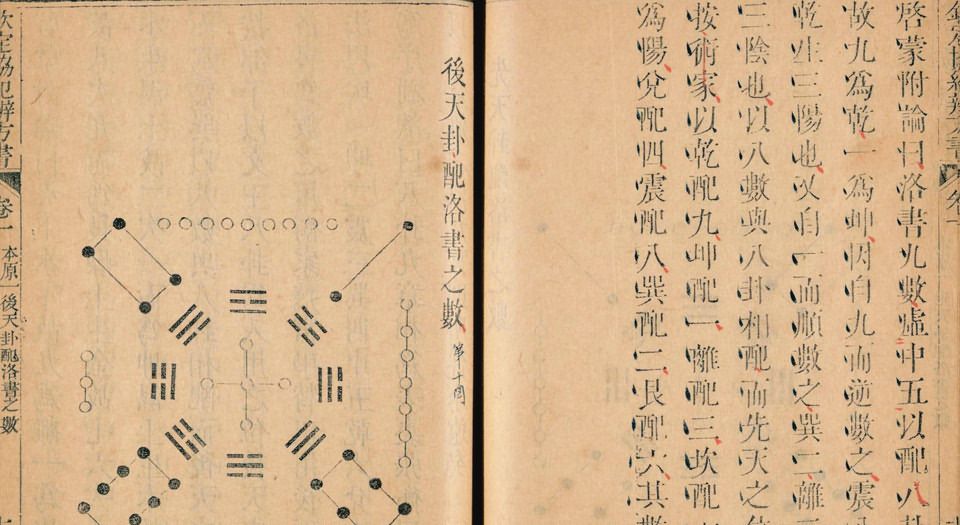 欽定協紀辨方書 卷一
啓蒙附論曰洛書九數虛中五以配八卦
故九爲乾一爲坤因自九而逆數之震
乾生三陽也又自一而順數之巽二離三
三陰也以八數與八卦相配而先天之位
按術家以乾配九坤配一離配三坎配
爲陽兌配四震配八巽配二艮配六其數
後天卦配洛書之數 第十圖
欽定協紀辨方書 卷一 本原一 後天卦配洛書之數